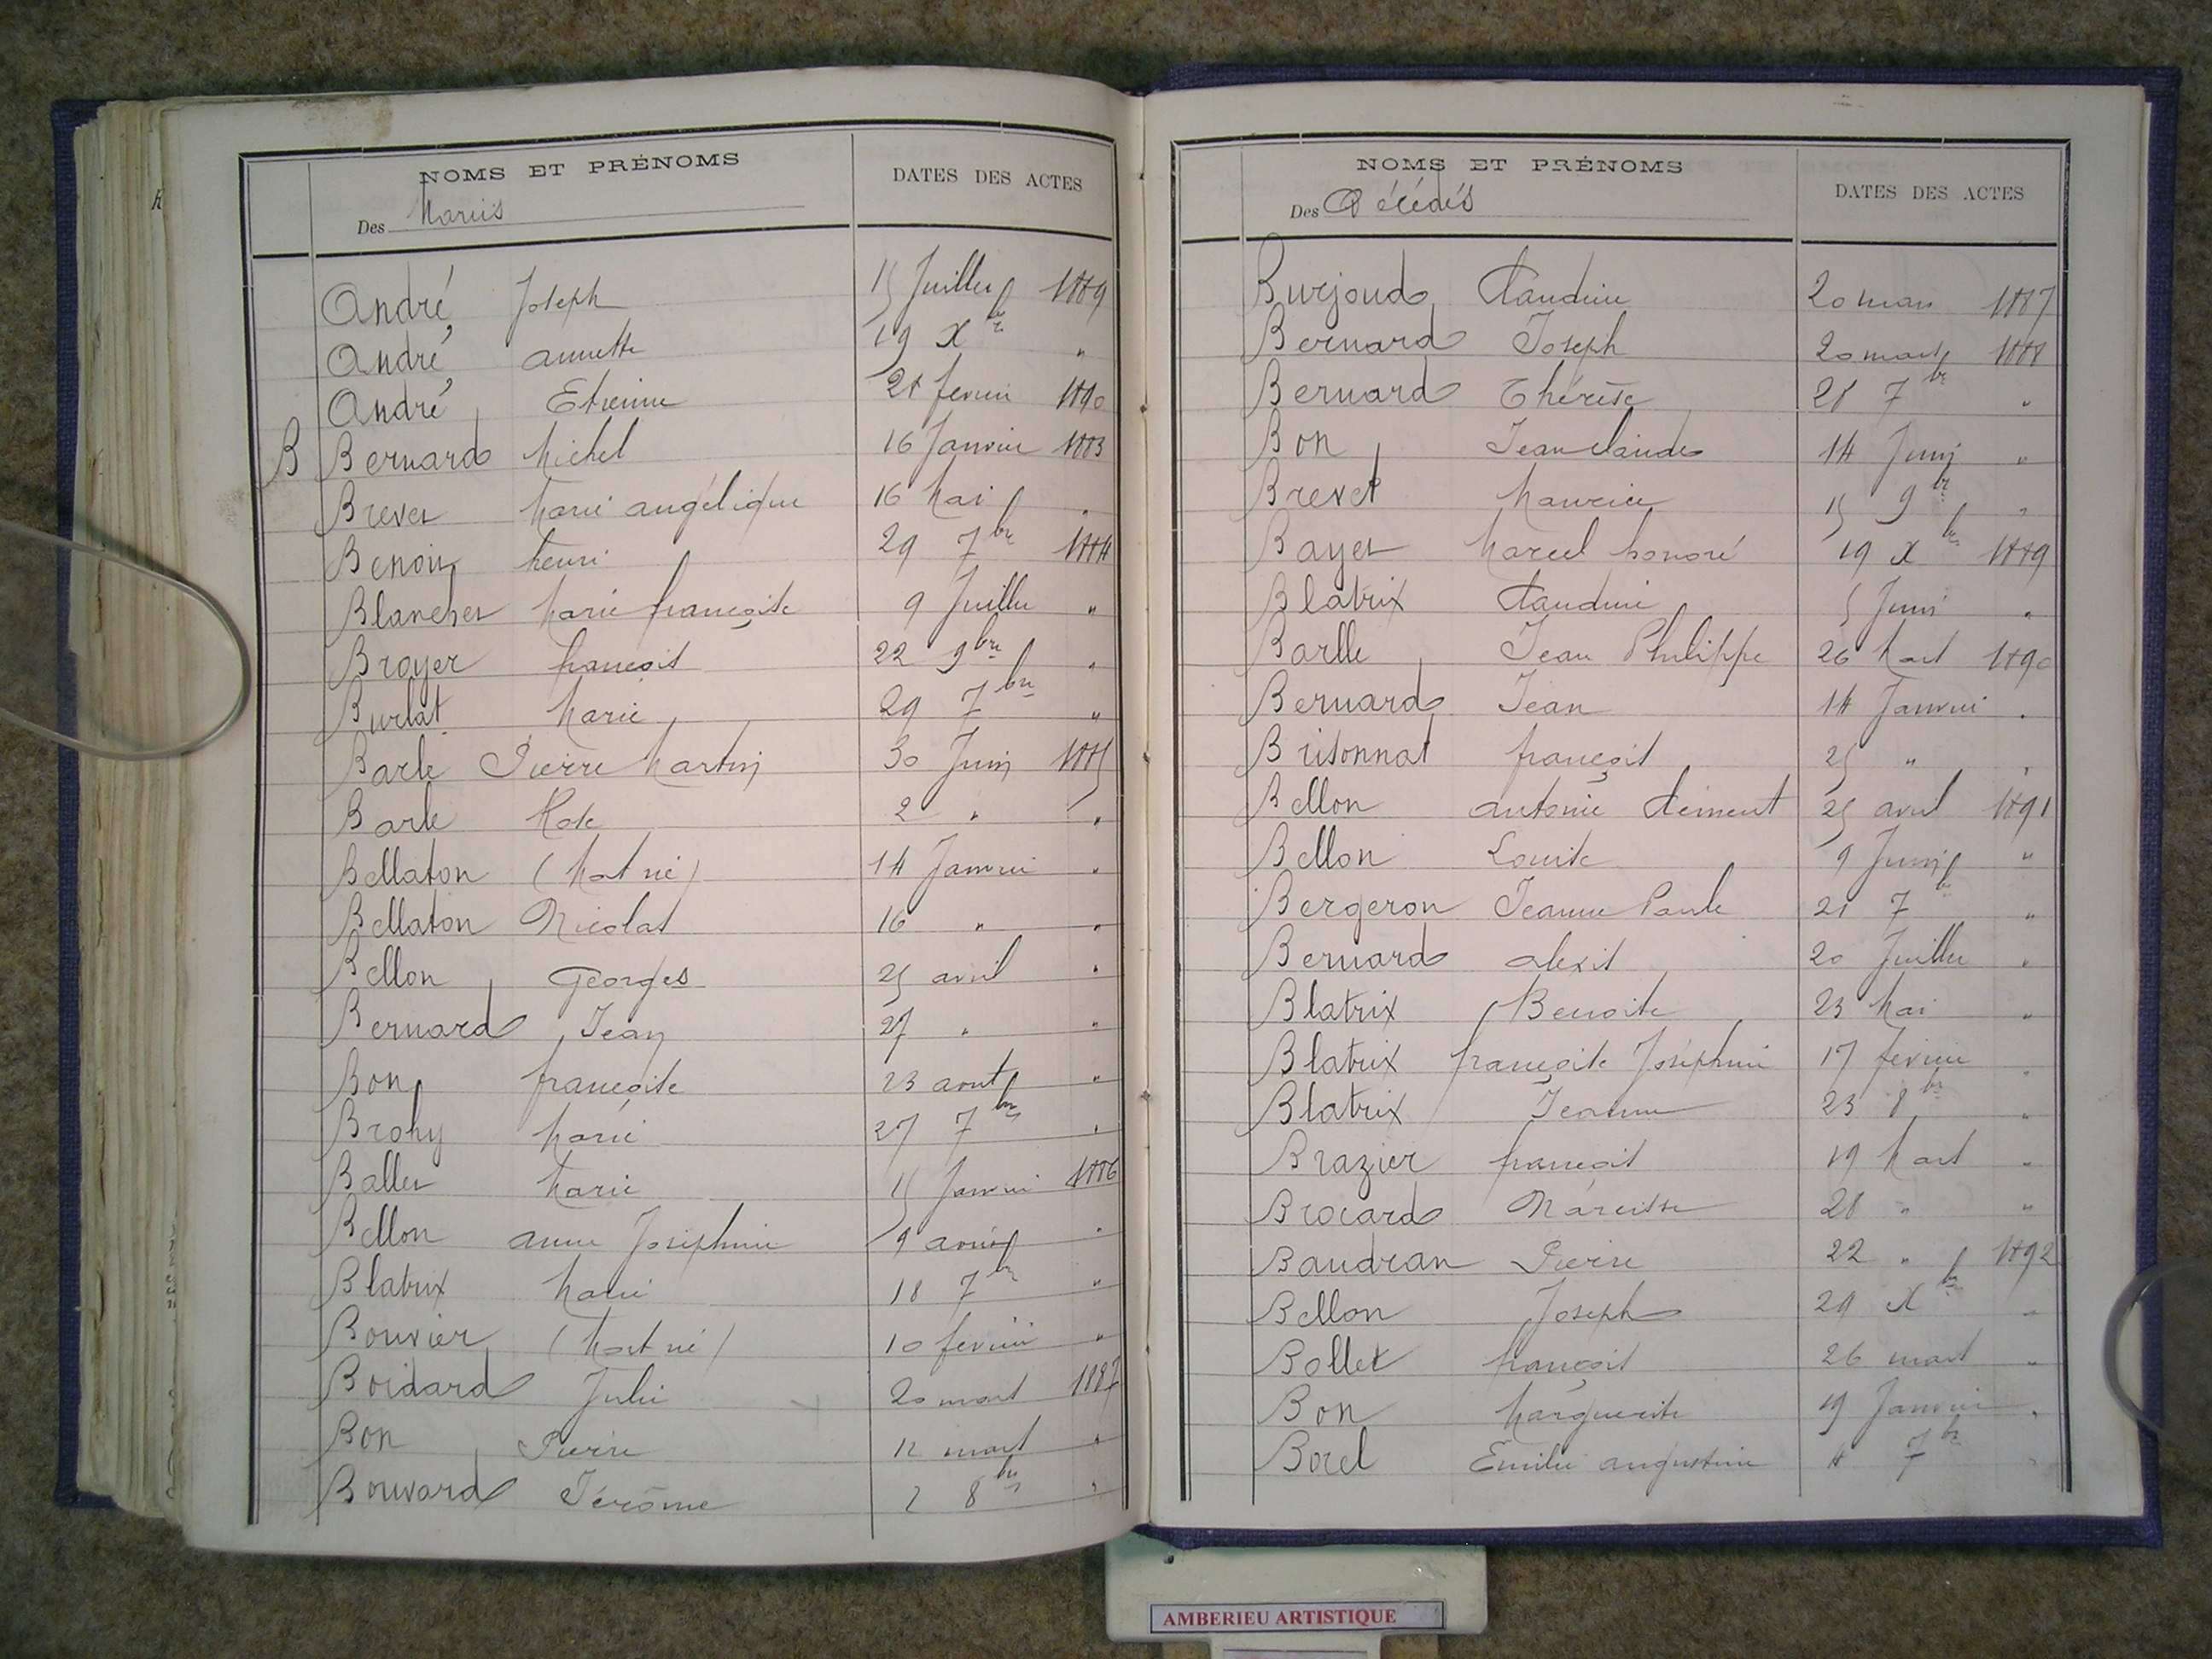 NOMS ET PRÉNOMS DATES DES ACTES
Des Mariés
André Joseph 15 Juillet 1889
André annette 19 Xbre "
André Etienne 28 fevrier 1890
B Bernard Michel 16 Janvier 1883
Brevet Marie angélique 16 Mai "
Benoit henri 29 7bre 1884
Blanchet Marie françoise 9 Juillet "
Broyer françois 22 9bre "
Burlat Marie 29 7bre "
Barle Pierre Martin 30 Juin 1885
Barle Rose 2 " "
Bellaton (Mort né) 14 Janvier "
Bellaton Nicolas 16 " "
Bellon Georges 25 avril "
Bernard Jean 27 " "
Bon françoise 23 aout "
Brohy Marie 27 7bre "
Ballet Marie 15 Janvier 1886
Bellon anne Joséphine 9 "
Blatrix Marie 18 7bre "
Bouvier (Mort né) 10 fevrier "
Boidard Julie 20 mars 1887
Bon Pierre 12 mars "
Bouvard Jérôme 2 8bre "
NOMS ET PRÉNOMS DATES DES ACTES
Des Décédés
Burjoud Claudine 20 mars 1887
Bernard Joseph 20 mars 1888
Bernard Thérèse 28 7bre "
Bon Jean Claude 14 Juin "
Brevet Maurice 15 9bre "
Bayet Marcel honoré 19 Xbre 1889
Blatrix Claudine 5 Juin "
Barlle Jean Philippe 26 Mars 1890
Bernard Jean 14 Janvier "
Brisonnat françois 25 " "
Bellon antoine Clément 25 avril 1891
Bellon Louise 9 Juin "
Bergeron Jeanne Paule 21 7bre "
Bernard alexis 20 Juillet "
Blatrix Benoite 23 Mai "
Blatrix françoise Joséphine 17 fevrier "
Blatrix Jeanne 23 8bre "
Brazier françois 19 Mars "
Brocard Narcisse 28 " "
Baudran Pierre 22 " 1892
Bellon Joseph 29 Xbre "
Bollet françois 26 mars "
Bon Marguerite 19 Janvier "
Borel Emilie augustine 4 7bre "
AMBERIEU ARTISTIQUE